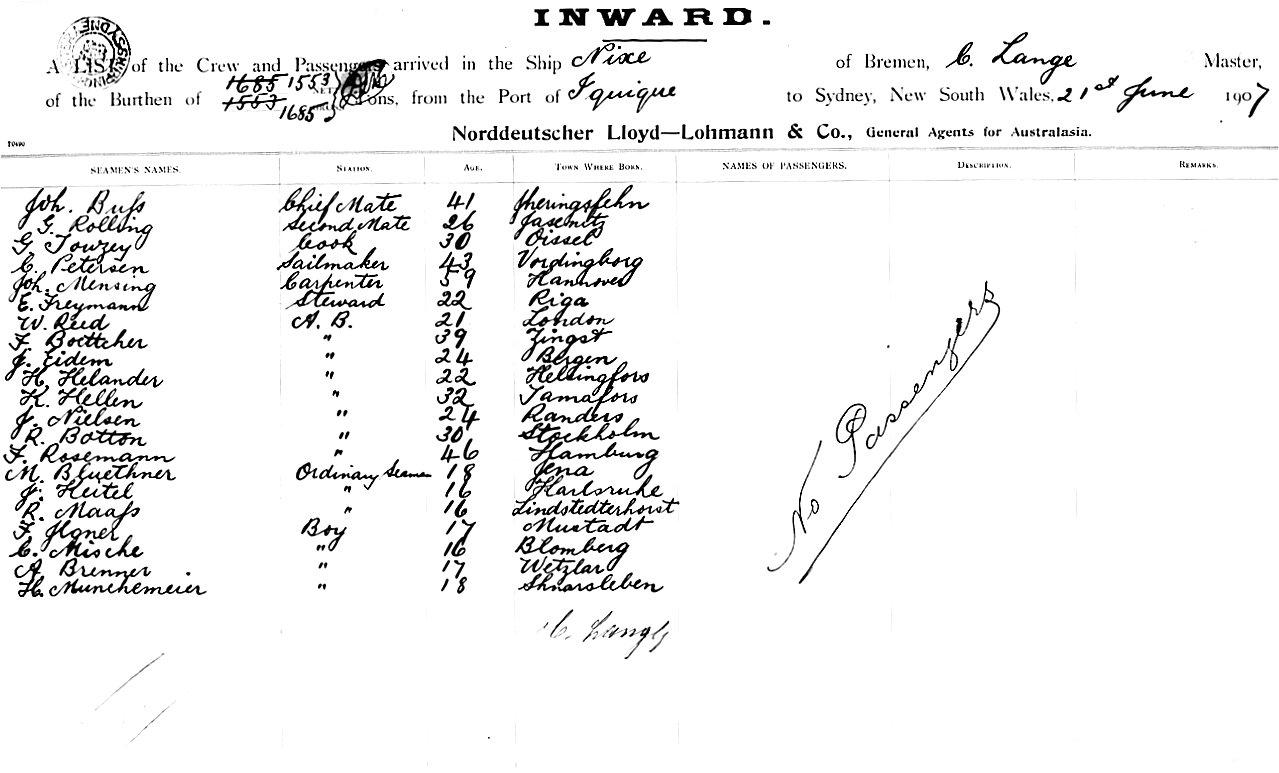 INWARD.
A LIST of the Crew and Passengers arrived in the Ship Nixe of Bremen, C. Lange Master,
of the Burthen of 1685 1553 Tons, from the Port of Iquique to Sydney, New South Wales, 21st June 1907
1553 1685
Norddeutscher Lloyd—Lohmann & Co., General Agents for Australasia.
SEAMEN'S NAMES. STATION. AGE. TOWN WHERE BORN. NAMES OF PASSENGERS. DESCRIPTION. REMARKS.
Joh. Buſs Chief Mate 41 Jheringsfehn
G. Rolling Second Mate 26 Jasenitz
G. Towzey Cook 30 Oissel
C. Petersen Sailmaker 43 Vordingborg
Joh. Mensing Carpenter 59 Hannover
E. Freymann Steward 22 Riga
W. Reed A. B. 21 London
F. Boettcher " 39 Zingst
J. Eidem " 24 Bergen
H. Helander " 22 Helsingfors
K. Hellen " 32 Tamafors
J. Nielsen " 24 Randers
R. Botton " 30 Stockholm
F. Rosemann " 46 Hamburg
M. Bluethner Ordinary Seaman 18 Jena
J. Keitel " 16 Karlsruhe
R. Maaſs " 16 Lindstedterhorst
F. Ilgner Boy 17 Mustadt
C. Mische " 16 Blomberg
A. Brenner " 17 Wetzlar
H. Munchemeier " 18 Shnarsleben
No Passengers
C. Lange